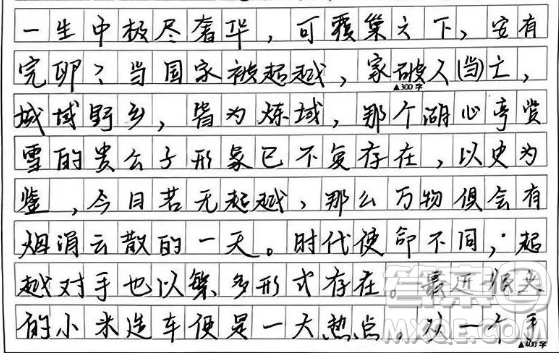 一生中极尽奢华，可覆巢之下，安有
完卵？当国家被超越，家破人亡，
▲300字
城域野乡，皆为炼域，那个湖心亭赏
雪的贵公子形象已不复存在，以史为
鉴，今日若无超越，那么万物俱会有
烟消云散的一天。时代使命不同，超
越对手也以繁多形式存在。最近很火
的小米造车便是一大热点，从一个手
▲400字